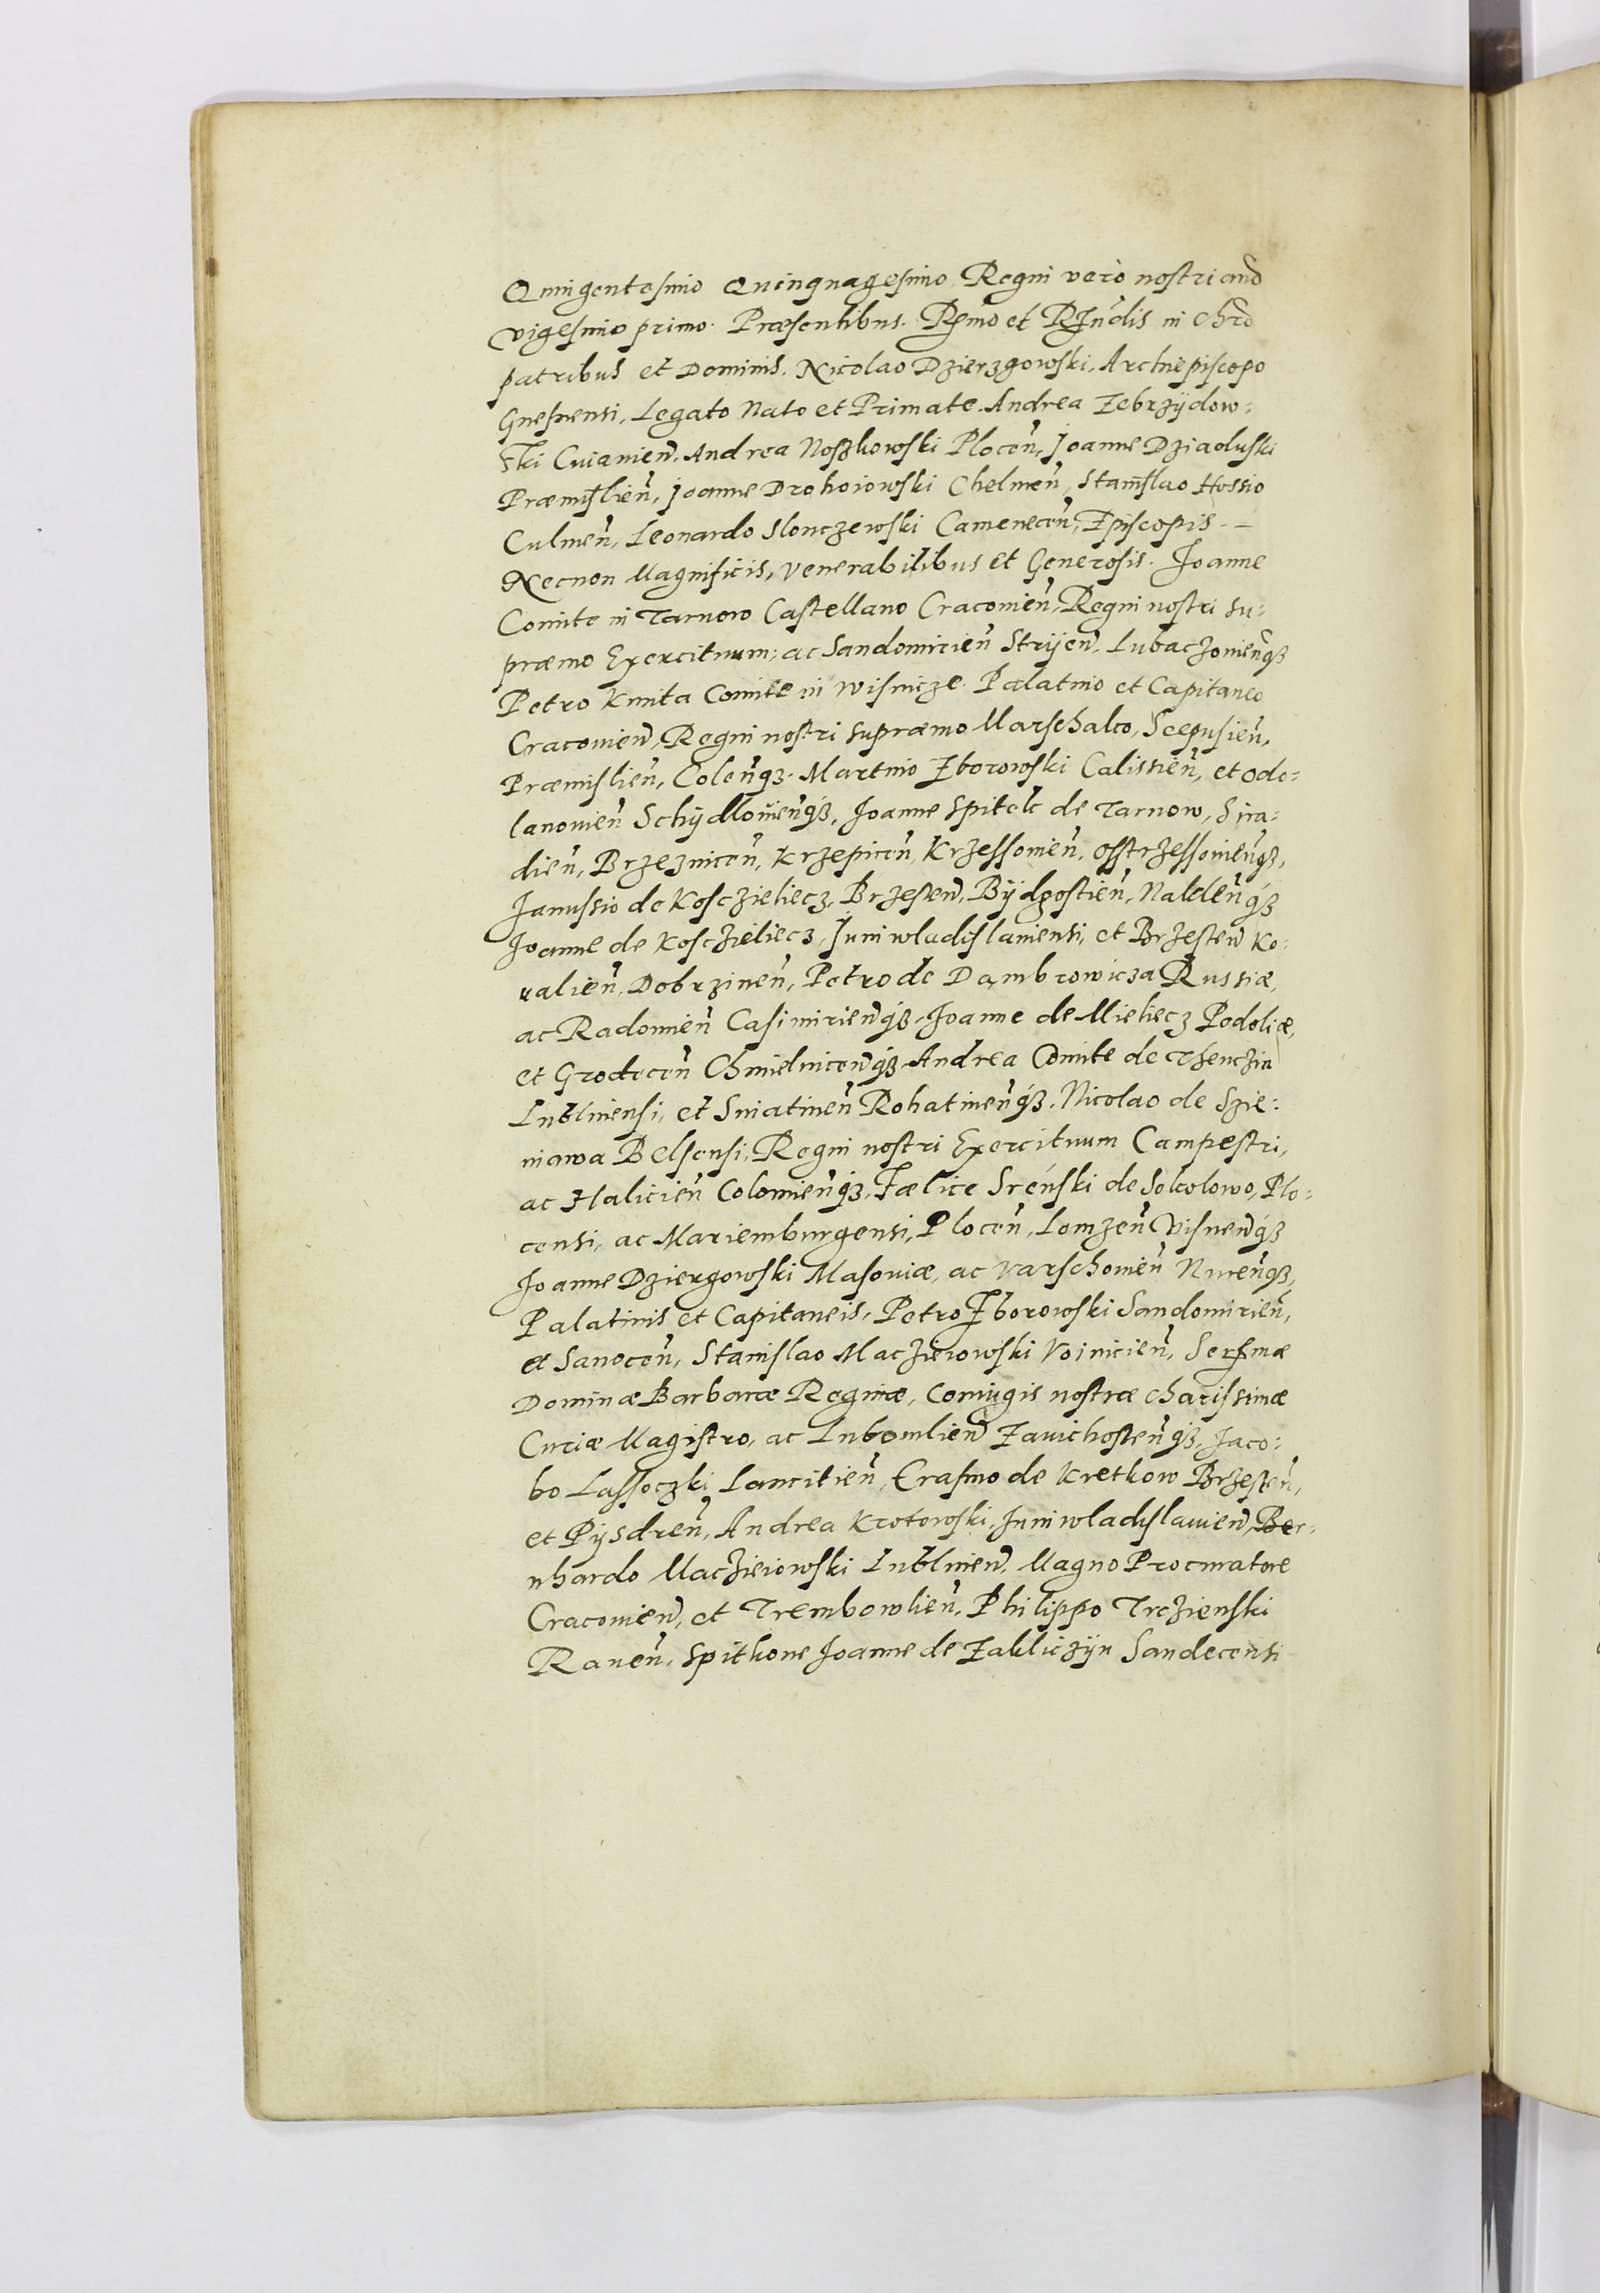 Quingentesimo Quinquagesimo Regni verò nostri anno
vigesimo primo. Præsentibus. Rṃo et RIndis in Chro
patribus et Dominis. Nicolao Dzierzgowski, Archiepiscopo
Gnesnensi, Legato Nato et Primate. Andrea Zebrzÿdow-
ski Cuiavien̄. Andrea Noszkowski Plocen̄, Joanne Dziaoluski
Præmislien̄, Joanne Drohoiowski Chelmen̄, Stanislao Hossio
Culmen̄, Leonardo Slonczewski Camenecen̄, Episcopis. –
Necnon Magnificis, Venerabilibus et Generosis. Joanne
Comite in Tarnow Castellano Cracovien̄, Regni nostri su-
præmo Exercituum; ac Sandomirien̄ Strÿen̄, Lubaczovien̄qꝫ
Petro Kmita Comite in Wisnicze Palatino et Capitaneo
Cracovien̄, Regni nostri supræmo Marschalco, Scepusien̄,
Præmislien̄, Colen̄qꝫ. Martino Zborowski Calissien̄, et Odo-
lanovien̄ Schÿdlovien̄qꝫ, Joanne Spitek de Tarnow, Sira-
dien̄, Brzeznicen̄, Krzepicen̄, Krzessovien̄, Osstrzessovien̄qꝫ,
Janussio de Kosczieliecz, Brzesten̄, Bÿdgostien̄, Naklen̄qꝫ
Joanne de Kosczieliecz, Juniwladislaviensi, et Brzesten̄ Ko-
valien̄, Dobrzinen̄, Petro de Dambrowicza Russiæ,
ac Radomien̄ Casimirien̄qꝫ. Joanne de Mieliecz Podoliæ,
et Grodecen̄ Chmielnicen̄qꝫ Andrea Comite de Thenczin
Lublinensi, et Sniatinen̄ Rohatinen̄qꝫ. Nicolao de Szie-
niawa Belsensi, Regni nostri Exercituum Campestri,
ac Halicien̄ Colomien̄qꝫ, Fælice Srénski de Sokolowo, Plo-
censi, ac Mariemburgensi, Plocen̄, Lomzen̄ Visnen̄qꝫ
Joanne Dziergowski Masoviæ, ac Varschovien̄ Nuren̄qꝫ,
Palatinis et Capitaneis, Petro Zborowski Sandomirien̄,
et Sanocen̄, Stanislao Macziewowski Voinicien̄, Serṃæ
Dominæ Barbaræ Reginæ, Coniugis nostræ charissimæ
Curiæ Magistro, ac Lubomlien̄ Zavichosten̄qꝫ, Jaco-
bo Lassoczki Lancitien̄, Erasmo de Kretkow Brzesten̄,
et Pÿsdren̄, Andrea Krotowski, Juniwladislavien̄, Ber-
nhardo Macziejowski Lublinen̄, Magno Procuratore
Cracovien̄, et Trembowlien̄, Philippo Trczienski
Raven̄, Spitkone Joanne de Zakliczÿn Sandecensi